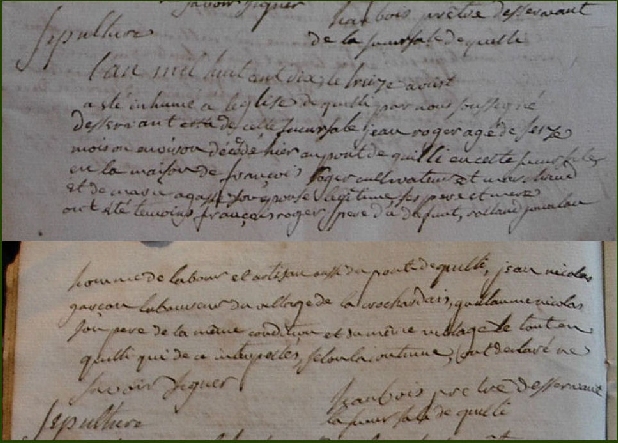 savoir signer
hanbois prêtre desservant
de la succursale de quilli
Sepulture
l'an mil huit cent dix, le treize avril
a été inhumé a l'eglise de quilli par nous soussigné
desservant de cette succursale, jean roger agé de seize
mois ou environ décédé hier au pont de quilli en cette succursale
en la maison de françois roger cultivateur et
et de marie son epouse legitime ses pere et mere
ont été temoins françois roger pere du defunt, rolland
homme de labour et artisan aussi du pont de quilli, jean nicolas
garçon laboureur du village de la rochardais, guillaume nicolas
son pere de la même condition et du même village le tout en
quilli qui de ce interpellés, selon la coutume, ont declaré ne
savoir signer
hanbois prêtre desservant
la succursale de quilli
Sepulture